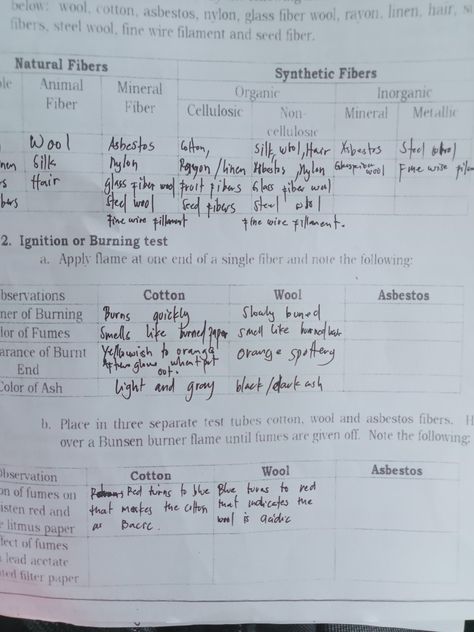 below: wool, cotton, asbestos, nylon, glass fiber wool, rayon, linen, hair,
fibers, steel wool, fine wire filament and seed fiber.
Natural Fibers Synthetic Fibers
Animal Fiber Mineral Fiber Organic Inorganic
Cellulosic Non-cellulosic Mineral Metallic
Wool Asbestos Cotton, Silk, wool, Hair Steel wool
Silk Nylon linen Nylon wool Fine wire
Hair Glass fiber wool fruit fibers Glass fiber wool
Steel wool Seed fibers Steel wool
Fine wire fillament fine wire fillament.
2. Ignition or Burning test
a. Apply flame at one end of a single fiber and note the following:
Observations Cotton Wool Asbestos
ner of Burning Burns quickly Slowly buned
lor of Fumes Smells like burned paper smell like burned hair
arance of Burnt End Yellowish to orange Afterglow when put out. orange
Color of Ash light and gray black/dark ash
b. Place in three separate test tubes cotton, wool and asbestos fibers. H
over a Bunsen burner flame until fumes are given off. Note the following:
Observation Cotton Wool Asbestos
on of fumes on Red turns to blue Blue turns to red
isten red and that the cotton that indicates the
litmus paper as Basic. wool is acidic
fect of fumes
lead acetate
ted filter paper